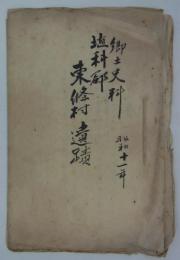 郷土史料
埴科郡
東條村 遺蹟
昭和十一年